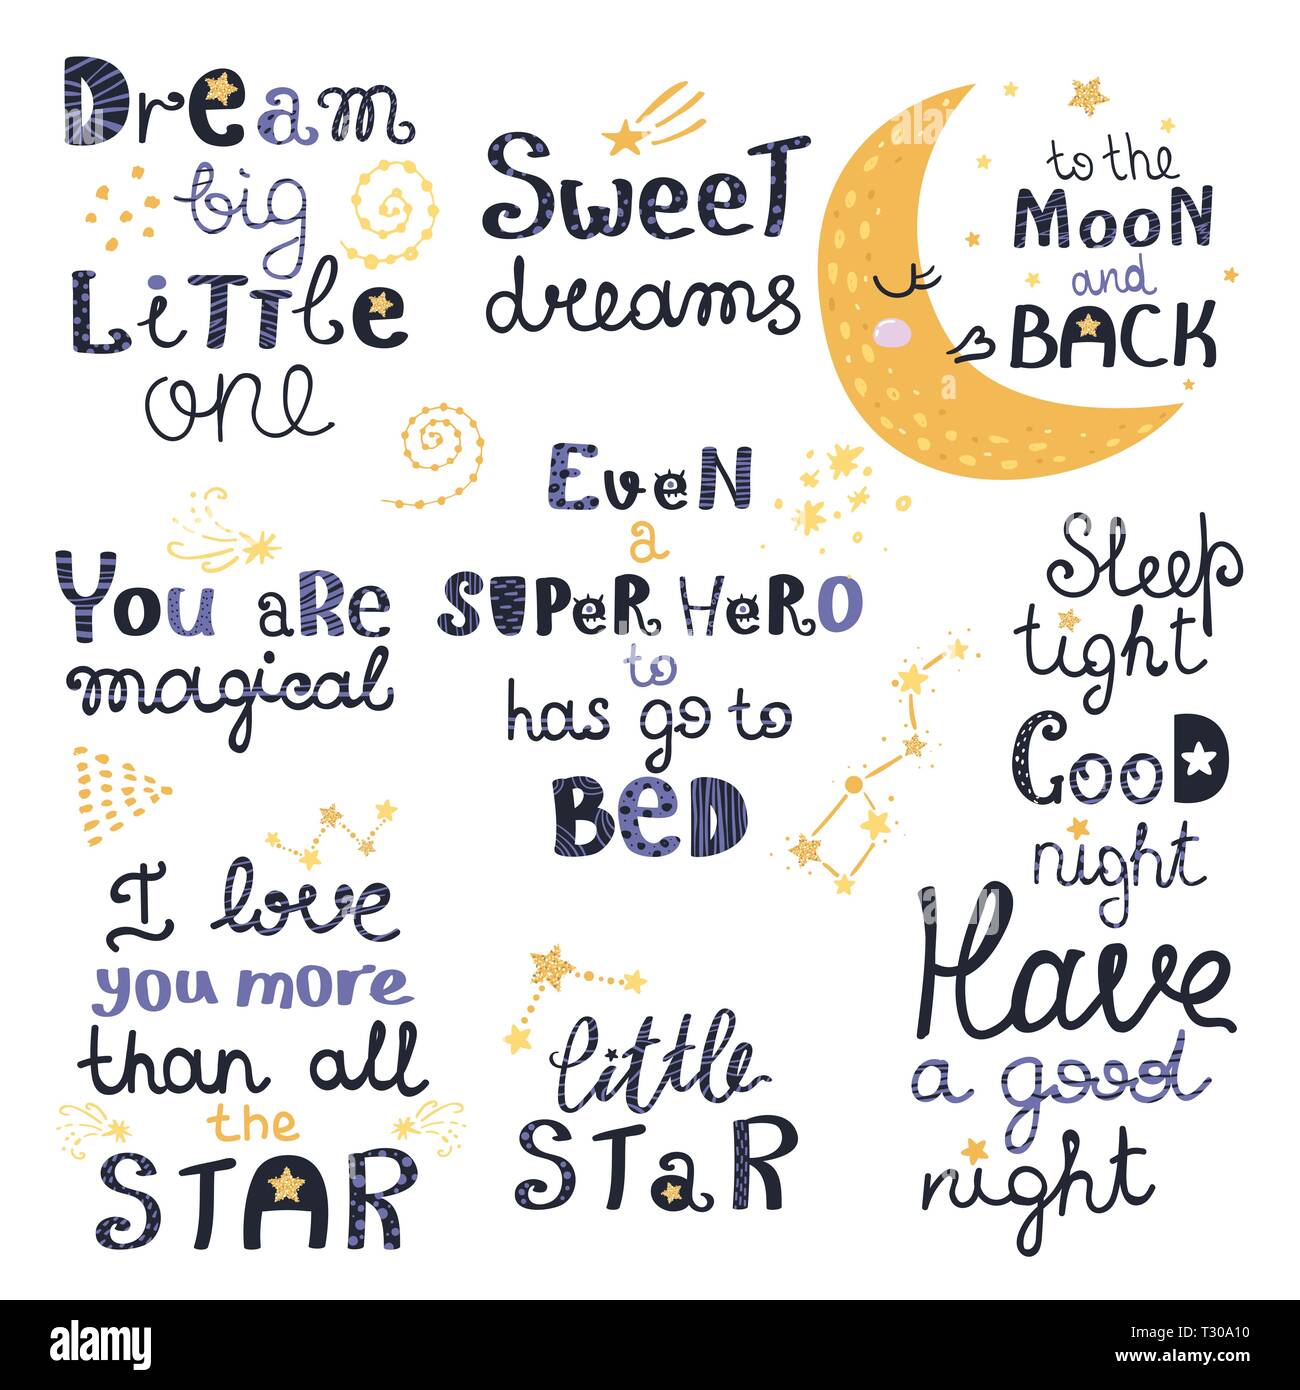 Dream
big
Little
one
Sweet
dreams
to the
Moon
and
BACK
Even
a
SUPER HeRO
to
has go to
BED
You aRe
magical
Sleep
tight
GooD
night
I love
you more
than all
the
STAR
little
STaR
Have
a good
night
alamy
Image ID: T30A10
www.alamy.com